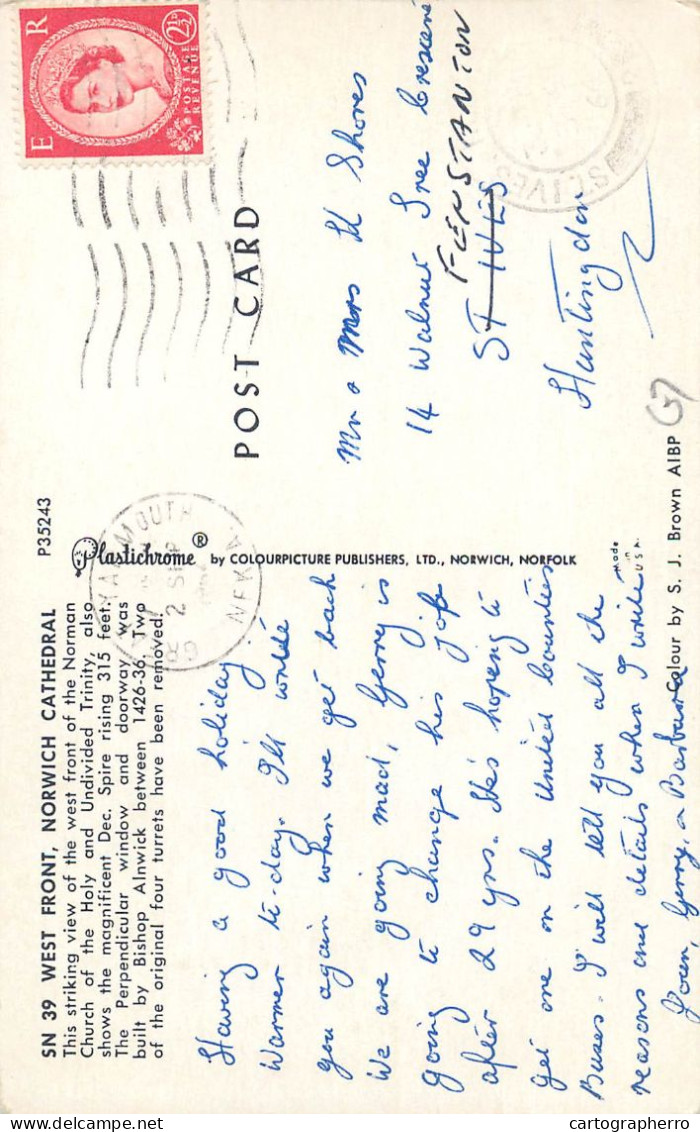 SN 39 WEST FRONT, NORWICH CATHEDRAL
This striking view of the west front of the Norman
Church of the Holy and Undivided Trinity, also
shows the magnificent Dec. Spire rising 315 feet.
The Perpendicular window and doorway was
built by Bishop Alnwick between 1426-36. Two
of the original four turrets have been removed!
P35243
Having a good holiday.
Warmer to-day. I'll write
you again when we get back
We are going mad, Gerry is
going to change his job
after 29 yrs. He's hoping to
get one on the United Counties
Buses. I will tell you all the
reasons and details when I write
Gerry, & Barbara
Plastichrome ® by COLOURPICTURE PUBLISHERS, LTD., NORWICH, NORFOLK
Made
in
U.S.A.
YARMOUTH
2 SEP
POST CARD
E R
POSTAGE
REVENUE
2½D
Mr & Mrs H Shores
14 Walnut Tree Crescent
FENSTANTON
ST IVES
Huntingdon
ST. IVES
Colour by S. J. Brown AIBP
cartographerro